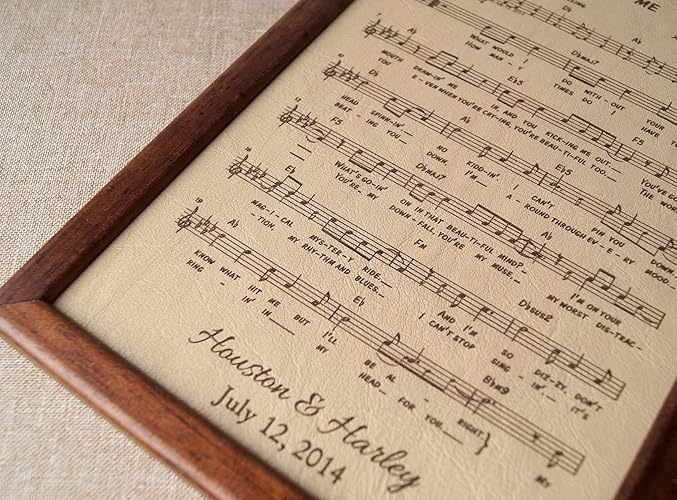 ME
A♭ D♭maj7 A♭
WHAT WOULD I DO WITH-OUT YOUR
HOW MAN-Y TIMES DO I HAVE TO
D♭ E♭5 F5
MOUTH DRAW-IN' ME IN AND YOU KICK-ING ME OUT
YOU E-VEN WHEN YOU'RE CRY-ING, YOU'RE BEAU-TI-FUL TOO
F5 A♭ E♭5
HEAD SPIN-IN' NO KID-DIN' I CAN'T PIN YOU DOWN.
BEAT-ING YOU DOWN I'M A-ROUND THROUGH EV-E-RY MOOD.
D♭maj7 A♭
WHAT'S GO-IN' ON IN THAT BEAU-TI-FUL MIND? I'M ON YOUR
YOU'RE MY DOWN-FALL, YOU'RE MY MUSE, MY WORST DIS-TRAC-
16 E♭ Fm D♭sus2
MAG-I-CAL MYS-TER-Y RIDE AND I'M SO DIZ-ZY, DON'T
TION, MY RHY-THM AND BLUES I CAN'T STOP SING-IN' IT'S
19 A♭ E♭ B♭m9
KNOW WHAT HIT ME BUT I'LL BE AL-RIGHT
RING-IN' IN MY HEAD FOR YOU MY
Houston & Harley
July 12, 2014